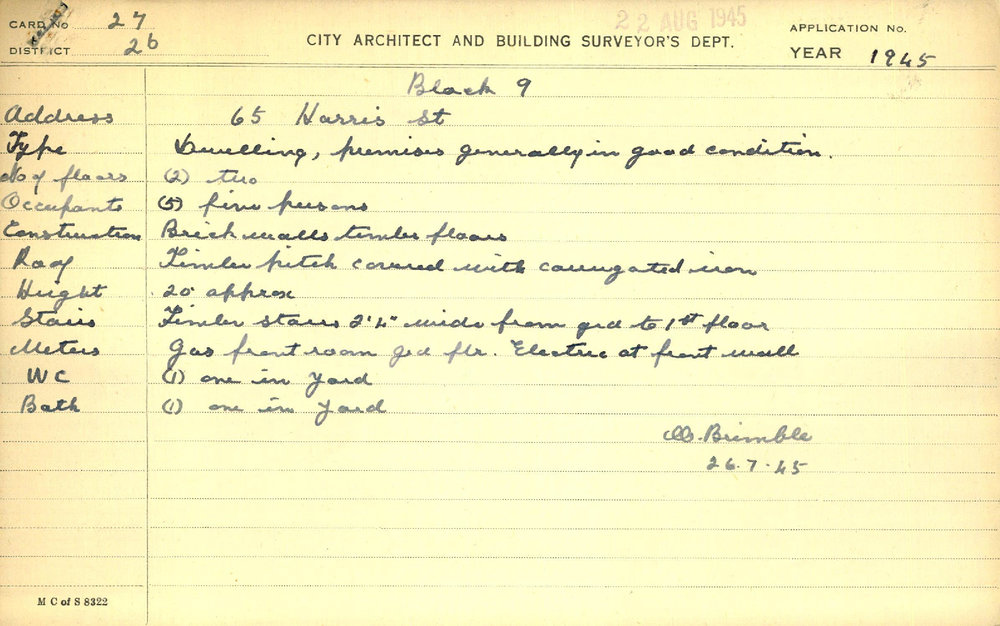 CARD No 27
22 AUG 1945
APPLICATION No.
DISTRICT 26
CITY ARCHITECT AND BUILDING SURVEYOR'S DEPT.
YEAR 1945
Block 9
Address 65 Harris St
Type Dwelling, premises generally in good condition.
No of floors (2) two
Occupants (5) five persons
Construction Brick walls timber floors
Roof Timber pitch covered with corrugated iron
Height 20' approx
Stairs Timber stairs 2'4" wide from grd to 1st floor
Meters Gas front room grd flr. Electric at front wall
WC (1) one in Yard
Bath (1) one in Yard
Brimble
26.7.45
M C of S 8322